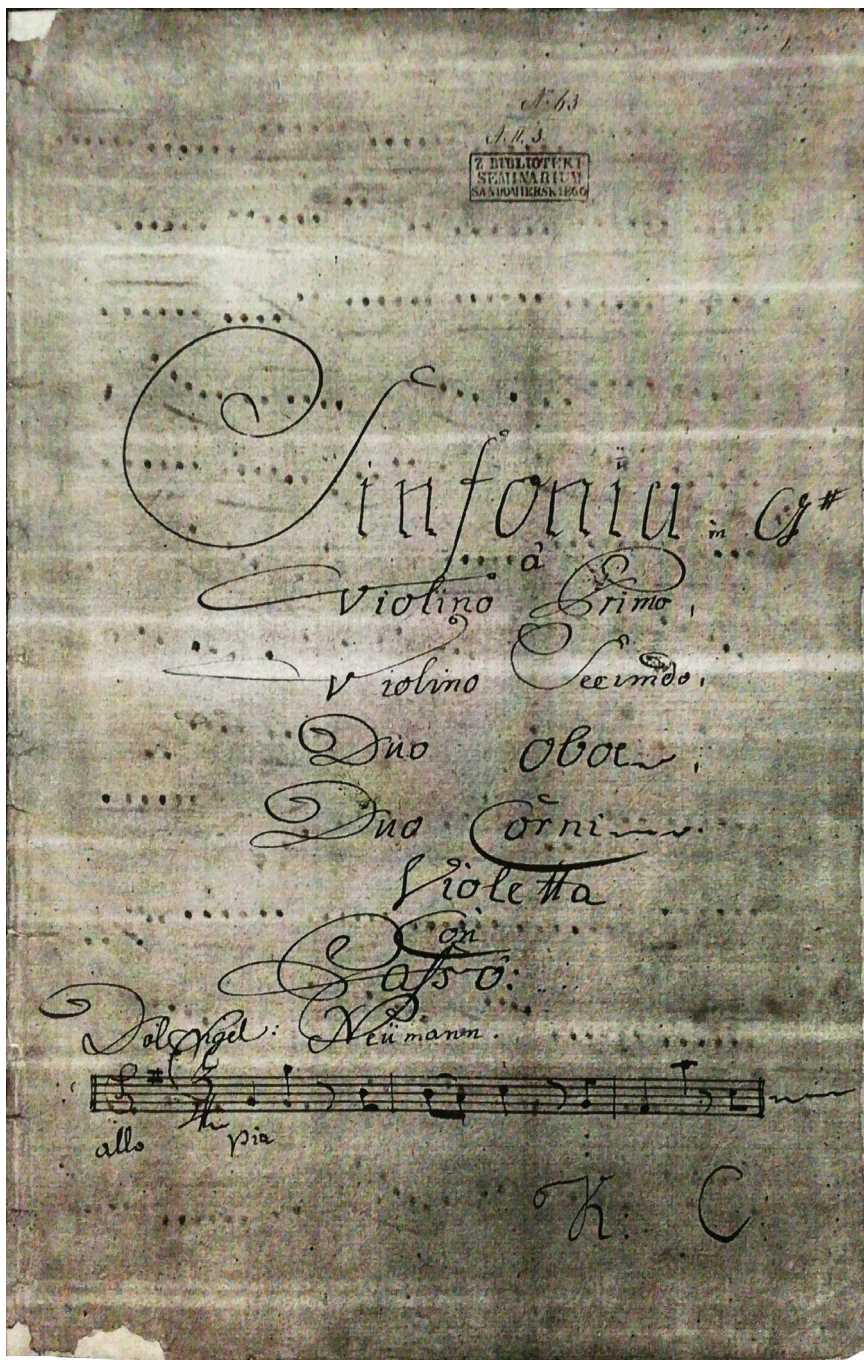 N. 63
A. II. 3.
Z BIBLIOTEKI
SEMINARIUM
SANDOMIERSKIEGO
Sinfonia in G#
à
Violino Primo,
Violino Secundo,
Duo Oboe,
Duo Corni
Violetta
Con
Basso:
Del Sigel: Neümann.
allo pia
K: C